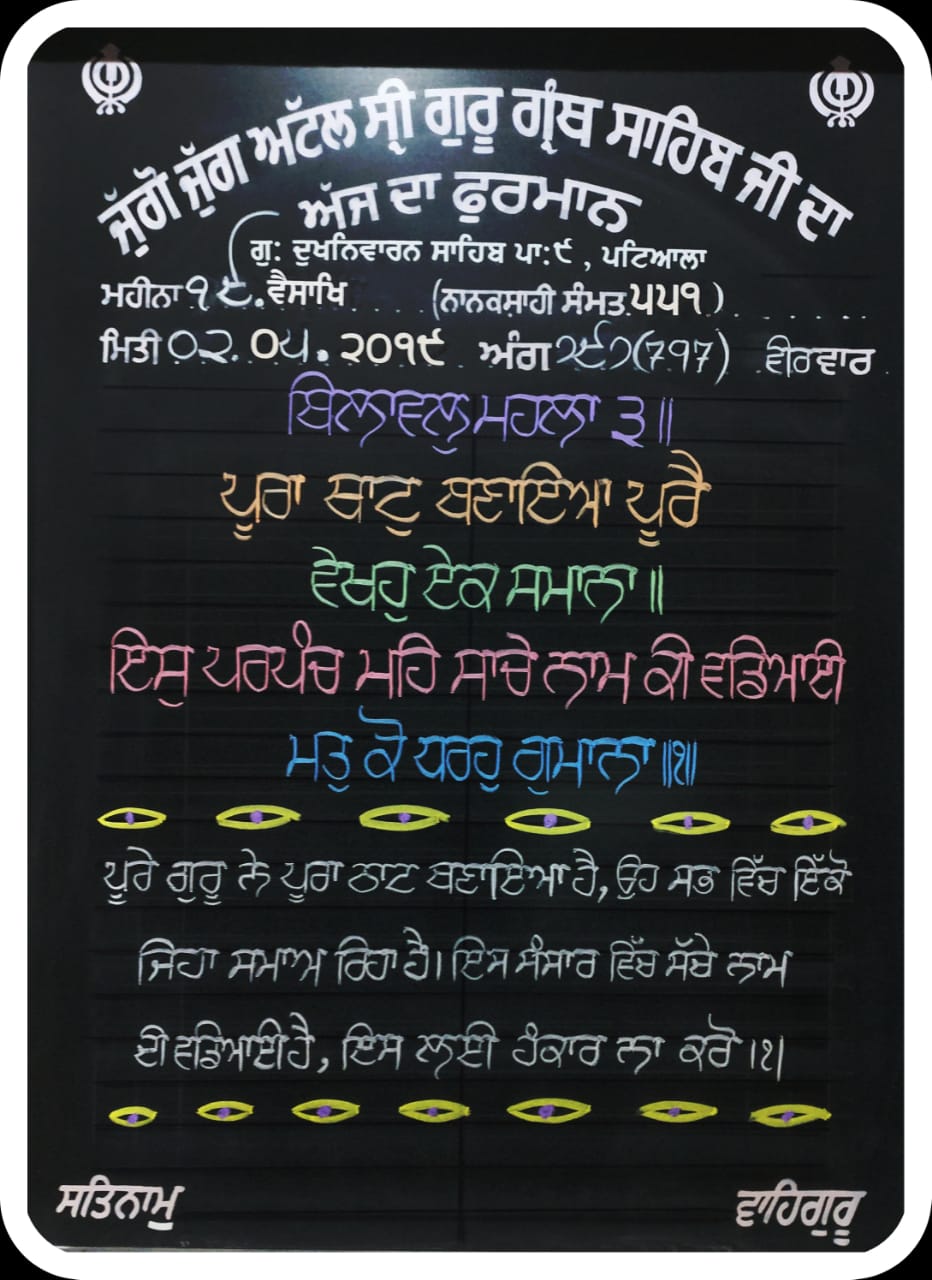 ਜੁੱਗੋ ਜੁੱਗ ਅਟੱਲ ਸ੍ਰੀ ਗੁਰੂ ਗ੍ਰੰਥ ਸਾਹਿਬ ਜੀ ਦਾ
ਅੱਜ ਦਾ ਫੁਰਮਾਨ
ਗੁ: ਦੁਖਨਿਵਾਰਨ ਸਾਹਿਬ ਪਾ:੯ , ਪਟਿਆਲਾ
ਮਹੀਨਾ ੧੯. ਵੈਸਾਖਿ (ਨਾਨਕਸਾਹੀ ਸੰਮਤ ੫੫੧ )
ਮਿਤੀ ੦੨. ੦੫. ੨੦੧੯ ਅੰਗ ੭੯੭(797) ਵੀਰਵਾਰ
ਬਿਲਾਵਲੁ ਮਹਲਾ ੩॥
ਪੂਰਾ ਥਾਟੁ ਬਣਾਇਆ ਪੂਰੈ
ਵੇਖਹੁ ਏਕ ਸਮਾਨਾ॥
ਇਸੁ ਪਰਪੰਚ ਮਹਿ ਸਾਚੇ ਨਾਮ ਕੀ ਵਡਿਆਈ
ਮਤੁ ਕੋ ਧਰਹੁ ਗੁਮਾਨਾ॥੧॥
ਪੂਰੇ ਗੁਰੂ ਨੇ ਪੂਰਾ ਠਾਟ ਬਣਾਇਆ ਹੈ, ਉਹ ਸਭ ਵਿੱਚ ਇੱਕੋ
ਜਿਹਾ ਸਮਾਅ ਰਿਹਾ ਹੈ। ਇਸ ਸੰਸਾਰ ਵਿੱਚ ਸੱਚੇ ਨਾਮ
ਦੀ ਵਡਿਆਈ ਹੈ, ਇਸ ਲਈ ਹੰਕਾਰ ਨਾ ਕਰੋ।੧।
ਸਤਿਨਾਮੁ
ਵਾਹਿਗੁਰੂ